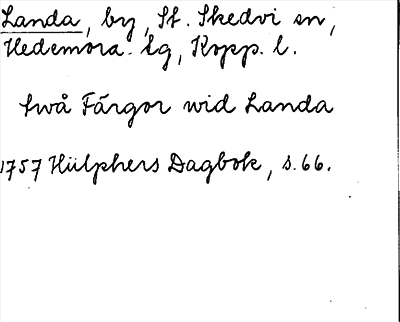 Landa, by, St. Skedvi sn,
Hedemora tg, Kopp. l.
två Färgor wid Landa
1757 Hülphers Dagbok, s. 66.